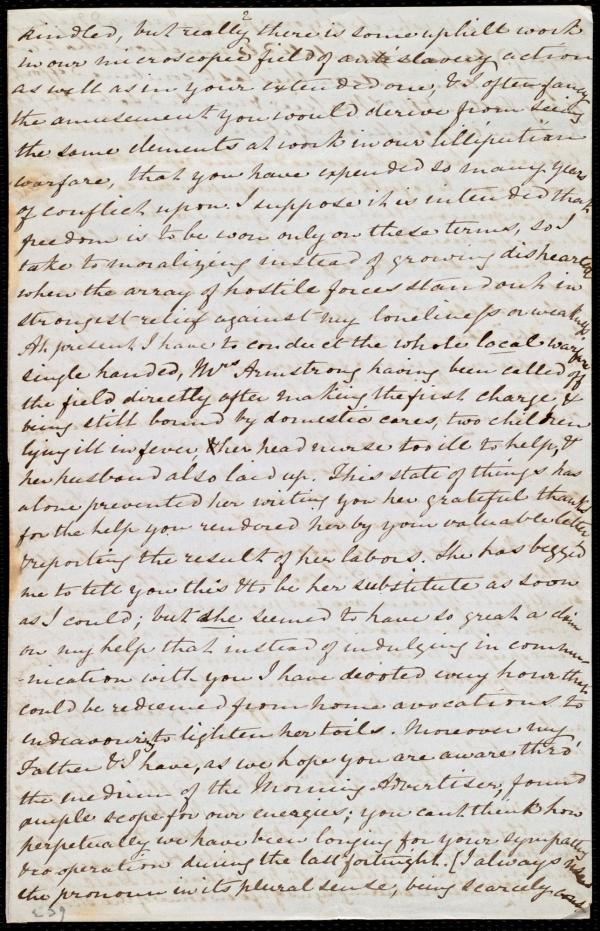 2
kindled, but really there is some uphill work
in our microscopic field of anti slavery action
as well as in your extended one, & I often fancy
the amusement you would derive from seeing
the same elements at work in our lilliputian
warfare, that you have expended so many years
of conflict upon. I suppose it is intended that
freedom is to be won only on these terms, so I
take to moralizing instead of growing disheartened
when the array of hostile forces stand out in
strongest relief against my loneliness or weakness.
At present I have to conduct the whole local warfare
single handed, Mrs Armstrong having been called off
the field directly after making the first charge, &
being still bound by domestic cares, two children
lying ill in fever, & her head nurse too ill to help, &
her husband also laid up. This state of things has
alone prevented her writing you her grateful thanks
for the help you rendered her by your valuable letter
& reporting the result of her labors. She has begged
me to tell you this & to be her substitute as soon
as I could; but she seemed to have so great a claim
on my help that instead of indulging in commu-
-nication with you I have devoted every hour that
could be redeemed from home avocations to
endeavouring to lighten her toils. Moreover my
Father & I have, as we hope you are aware thro'
the medium of the Morning Advertiser, found
ample scope for our energies; you cant think how
perpetually we have been longing for your sympathy
& co operation during the last fortnight. [I always
the pronoun in its plural sense, being scarcely